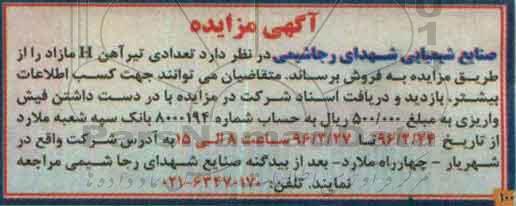 آگهی مزایده
صنایع شیمیایی شهدای رجاشیمی در نظر دارد تعدادی تیرآهن H مازاد را از
طریق مزایده به فروش برساند. متقاضیان می توانند جهت کسب اطلاعات
بیشتر، بازدید و دریافت اسناد شرکت در مزایده با در دست داشتن فیش
واریزی به مبلغ ۵۰۰/۰۰۰ ریال به حساب شماره ۸۰۰۰۱۹۴ بانک سپه شعبه ملارد
از تاریخ ۹۶/۲/۲۴ تا ۹۶/۲/۲۷ ساعت ۸ الی ۱۵ به آدرس شرکت واقع در
شهریار - چهارراه ملارد- بعد از بیدگنه صنایع شهدای رجا شیمی مراجعه
نمایند. تلفن: ۶۳۴۷۰۱۷۰-۰۲۱
۱۰۰